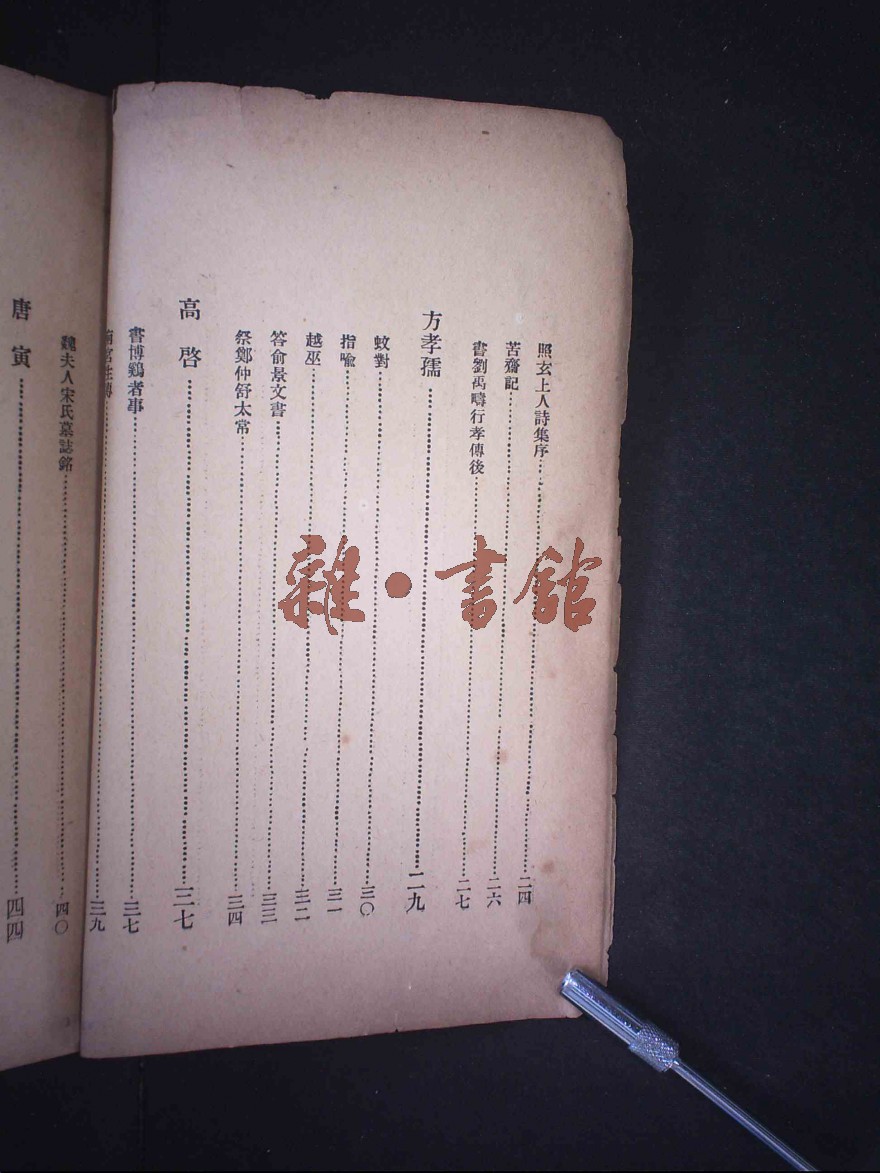 照玄上人詩集序……二四
苦齋記……二六
書劉禹疇行孝傳後……二七
方孝孺……二九
蚊對……三〇
指喻……三一
越巫……三二
答俞景文書……三三
祭鄭仲舒太常……三四
高啓……三七
書博鷄者事……三七
南宮生傳……三九
魏夫人宋氏墓誌銘……四〇
唐寅……四四
雜·書館